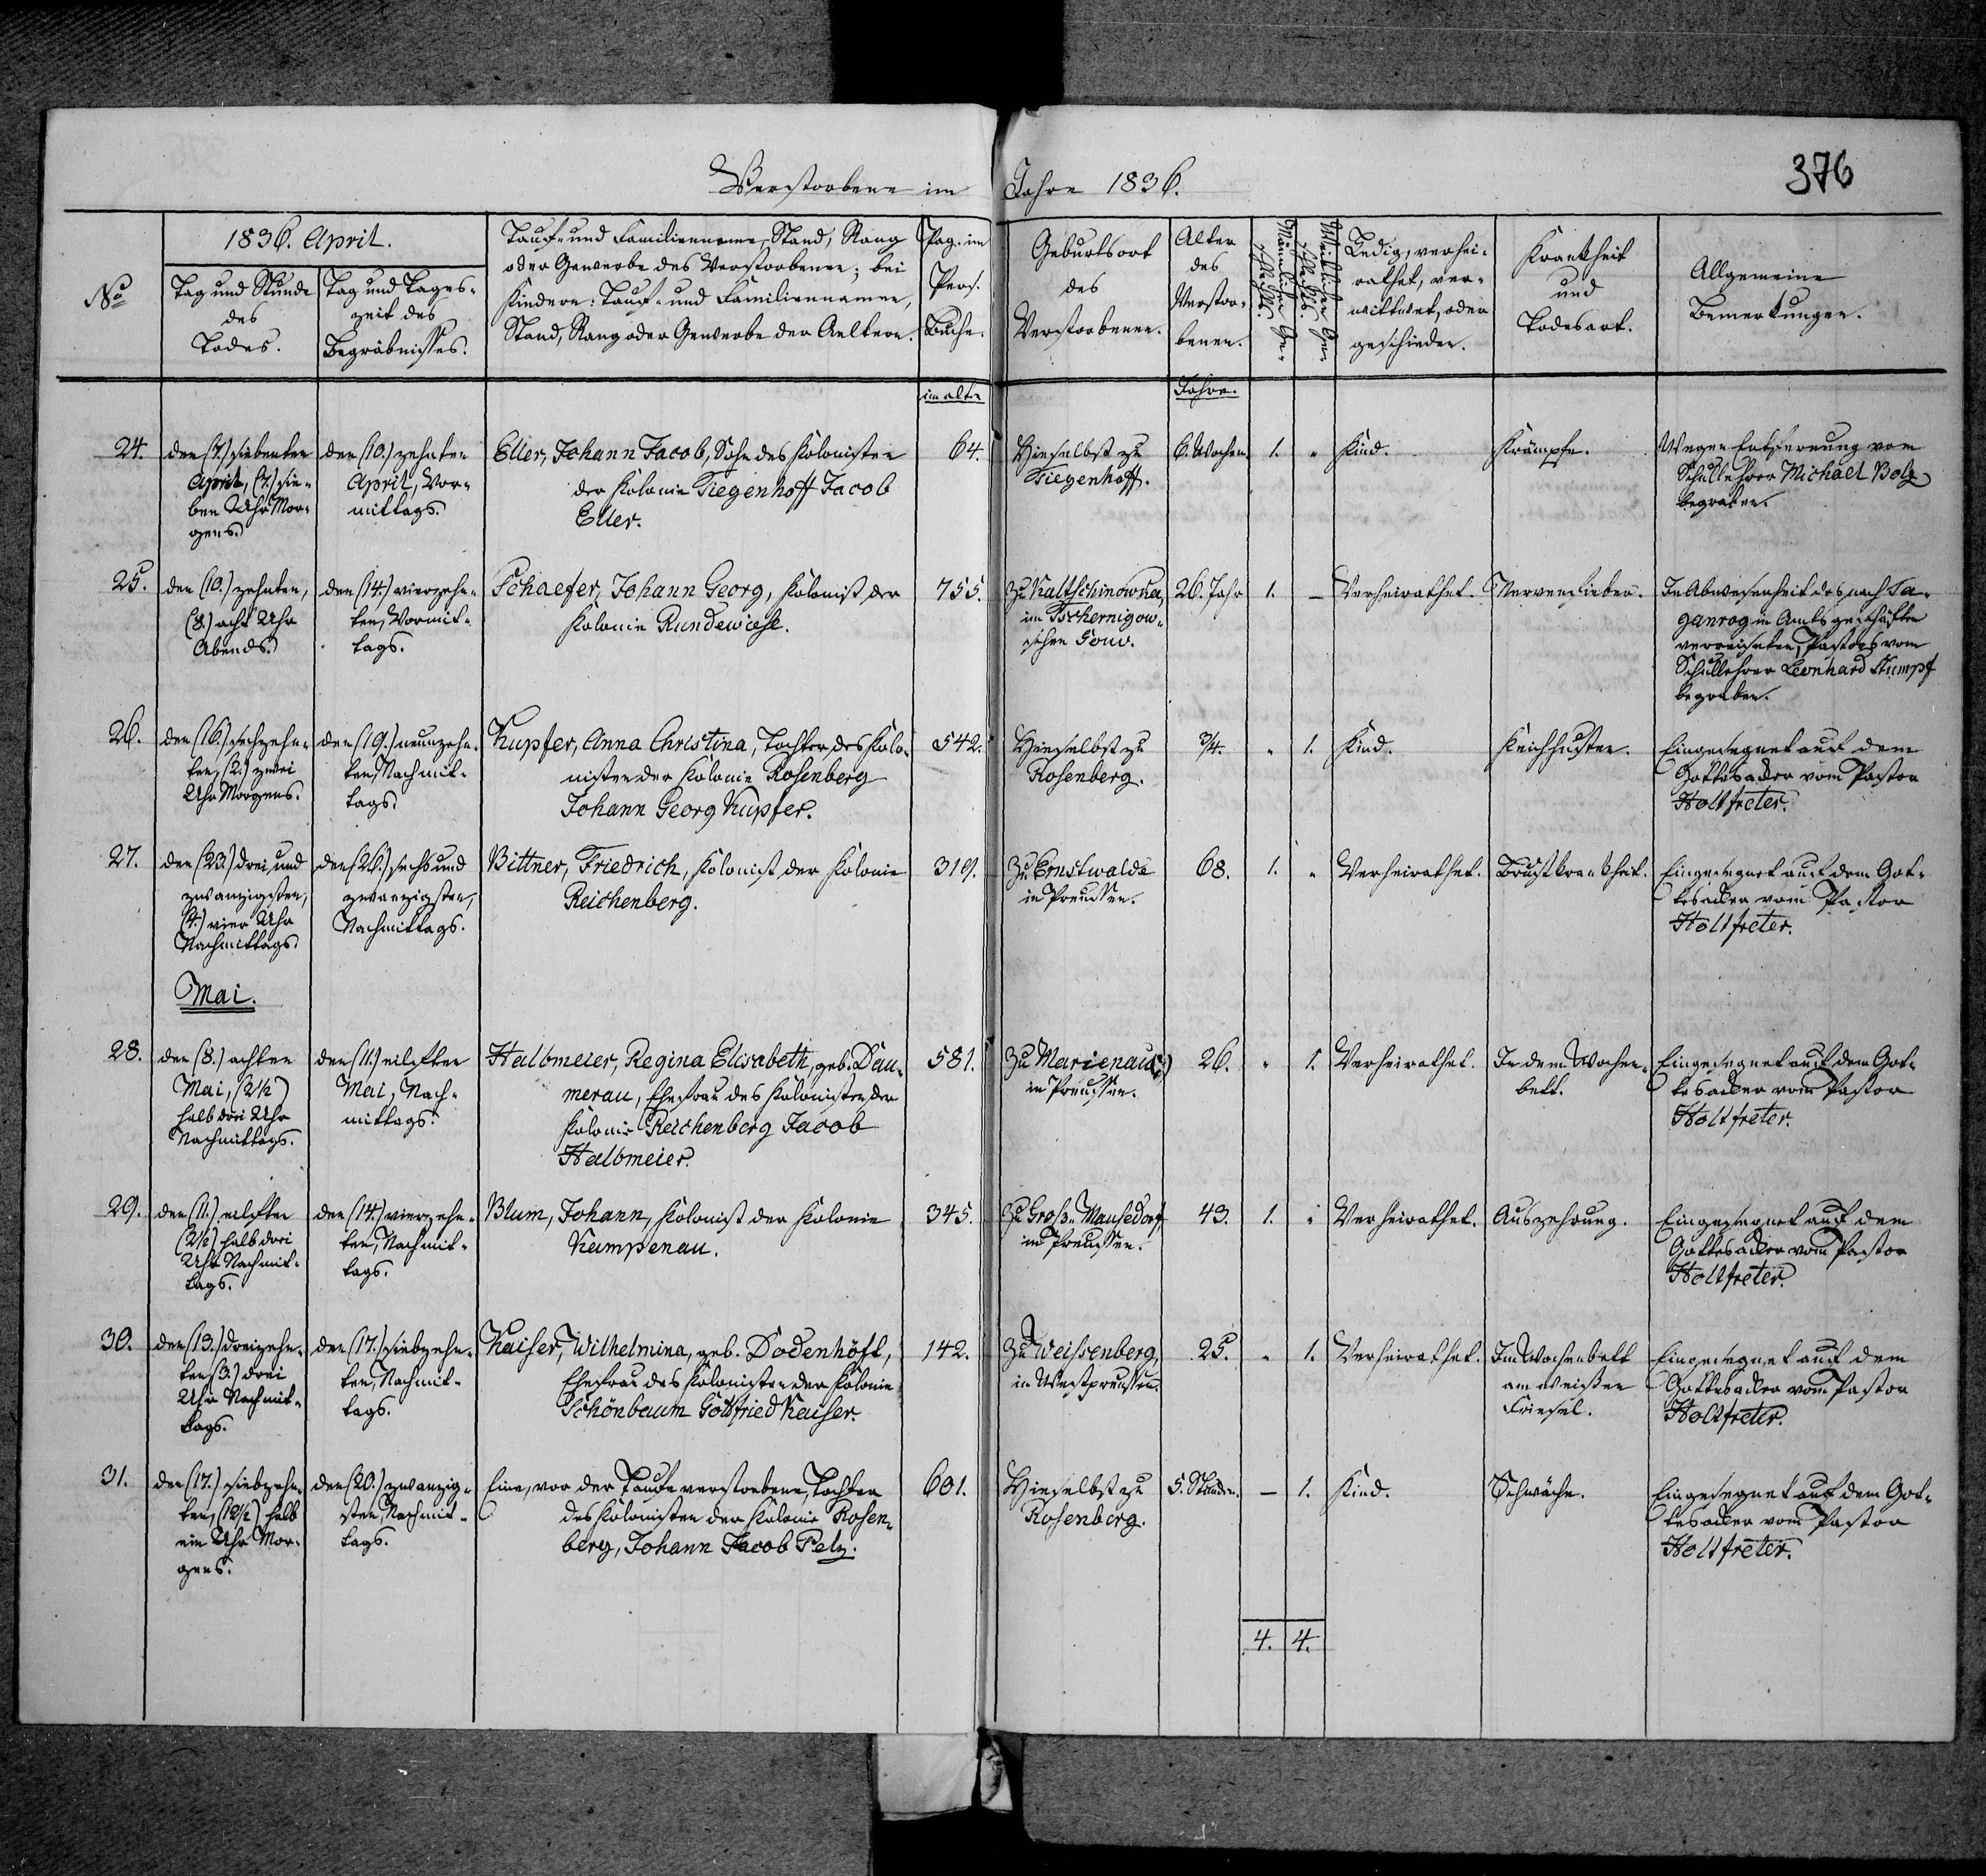 Verstorbene im Jahre 1836.
376
No
1836. April.
Tag und Stunde
des
Todes.
Tag und Tages-
zeit des
Begräbnisses.
Tauf- und Familienname, Stand, Rang
oder Gewerbe des Verstorbenen; bei
Kindern: Tauf- und Familiennamen,
Stand, Rang oder Gewerbe der Aeltern.
Pag. im
Pers.
Buche.
Geburtsort
des
Verstorbenen.
Alter
des
Verstor-
benen.
Männlichen Ge-
schlechts.
Weiblichen Ge-
schlechts.
Ledig, verhei-
rathet, ver-
wittwet, oder
geschieden.
Krankheit
und
Todesart.
Allgemeine
Bemerkungen.
im alten
Jahre.
24.
den (7.) siebenten
April, (7.) sie-
ben Uhr Mor-
gens.
den (10.) zehnten
April, Vor-
mittags.
Eller, Johann Jacob, Sohn des Kolonisten
der Kolonie Tiegenhoff Jacob
Eller.
64.
Hieselbst zu
Tiegenhoff.
6. Wochen.
1.
"
Kind.
Krämpfe.
Wegen Entfernung vom
Schullehrer Michael Bolz
begraben.
25.
den (10.) zehnten,
(8.) acht Uhr
Abends.
den (14.) vierzehn-
ten, Vormit-
tags.
Schaefer, Johann Georg, Kolonist der
Kolonie Rundewiese.
755.
Zu Kaltschinowka,
im Tschernigow-
schen Gouv.
26. Jahr
1.
–
Verheirathet.
Nervenfieber.
In Abwesenheit des nach Ta-
ganrog in Amtsgeschäften
verreiseten Pastors vom
Schullehrer Leonhard Stumpf
begraben.
26.
den (16.) sechzehn-
ten, (2.) zwei
Uhr Morgens.
den (19.) neunzehn-
ten, Nachmit-
tags.
Kupfer, Anna Christina, Tochter des Kolo-
nisten der Kolonie Rosenberg
Johann Georg Kupfer.
542.
Hieselbst zu
Rosenberg.
3/4.
"
1.
Kind.
Keichhusten.
Eingesegnet auf dem
Gottesacker vom Pastor
Holtfreter.
27.
den (23.) drei und
zwanzigsten,
(4.) vier Uhr
Nachmittags.
den (26.) sechs und
zwanzigsten,
Nachmittags.
Bittner, Friedrich, Kolonist der Kolonie
Reichenberg.
319.
Zu Ernstwalde
in Preussen.
68.
1.
"
Verheirathet.
Brustkrankheit.
Eingesegnet auf dem Got-
tesacker vom Pastor
Holtfreter.
Mai.
28.
den (8.) achten
Mai, (2 1/2)
halb drei Uhr
Nachmittags.
den (11.) eilften
Mai, Nach-
mittags.
Halbmeier, Regina Elisabeth, geb. Dau-
merau, Ehefrau des Kolonisten der
Kolonie Reichenberg Jacob
Halbmeier.
581.
Zu Marienau
in Preussen.
26.
"
1.
Verheirathet.
In dem Wochen-
bett.
Eingesegnet auf dem Got-
tesacker vom Pastor
Holtfreter.
29.
den (11.) eilften
(2 1/2) halb drei
Uhr Nachmit-
tags.
den (14.) vierzehn-
ten, Nachmit-
tags.
Blum, Johann, Kolonist der Kolonie
Kampenau.
345.
Zu Groß-Mausedorf
in Preussen.
43.
1.
"
Verheirathet.
Auszehrung.
Eingesegnet auf dem
Gottesacker vom Pastor
Holtfreter.
30.
den (13.) dreizehn-
ten (3.) drei
Uhr Nachmit-
tags.
den (17.) siebzehn-
ten, Nachmit-
tags.
Kaiser, Wilhelmina, geb. Dodenhöft,
Ehefrau des Kolonisten der Kolonie
Schönbaum Gottfried Kaiser.
142.
Zu Weissenberg,
in Westpreussen.
25.
"
1.
Verheirathet.
Im Wochenbett
am weißen
Friesel.
Eingesegnet auf dem
Gottesacker vom Pastor
Holtfreter.
31.
den (17.) siebzehn-
ten, (12 1/2) halb
ein Uhr Mor-
gens.
den (20.) zwanzig-
sten, Nachmit-
tags.
Eine, vor der Taufe verstorbene, Tochter
des Kolonisten der Kolonie Rosen-
berg, Johann Jacob Pelz.
601.
Hieselbst zu
Rosenberg.
5. Stunden.
–
1.
Kind.
Schwäche.
Eingesegnet auf dem Got-
tesacker vom Pastor
Holtfreter.
4.
4.